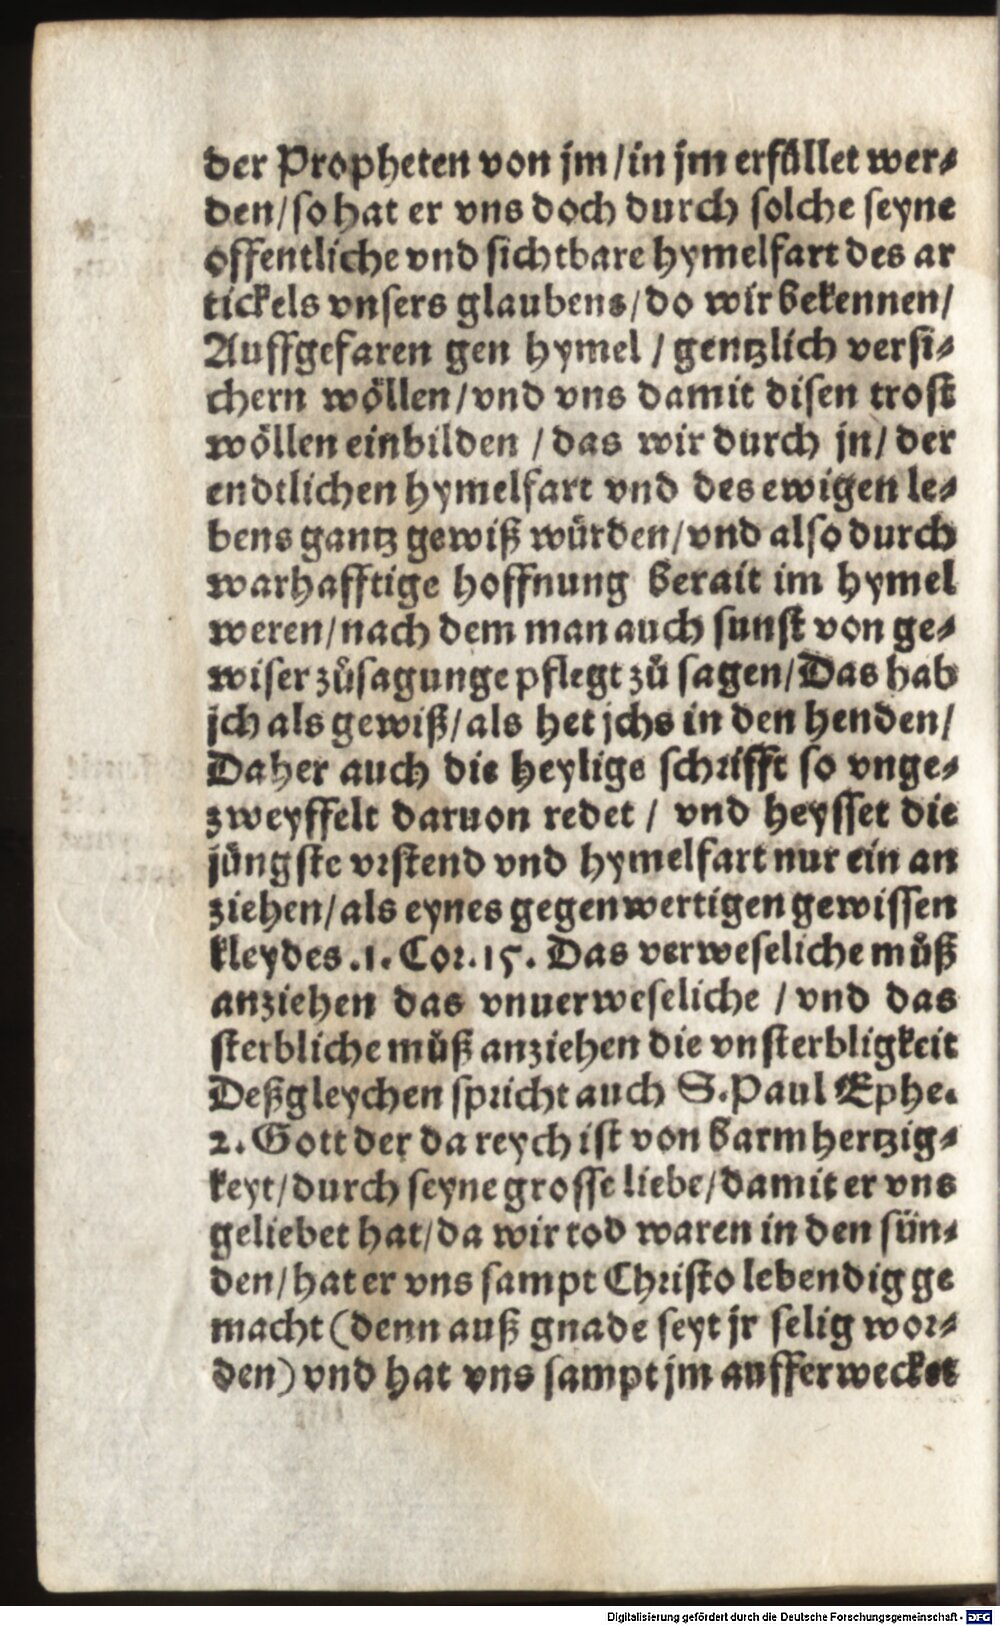 der Propheten von jm/in jm erfüllet wer⸗
den/so hat er vns doch durch solche seyne
offentliche vnd sichtbare hymelfart des ar
tickels vnsers glaubens/do wir bekennen/
Auffgefaren gen hymel / gentzlich versi⸗
chern wöllen/vnd vns damit disen trost
wöllen einbilden / das wir durch jn/ der
endtlichen hymelfart vnd des ewigen le⸗
bens gantz gewiß würden/vnd also durch
warhafftige hoffnung berait im hymel
weren/nach dem man auch sunst von ge⸗
wiser zůsagunge pflegt zů sagen/Das hab
jch als gewiß/als het jchs in den henden/
Daher auch die heylige schrifft so vnge⸗
zweyffelt daruon redet / vnd heysset die
jüngste vrstend vnd hymelfart nur ein an
ziehen/als eynes gegenwertigen gewissen
kleydes .1. Cor. 15. Das verweseliche můß
anziehen das vnuerweseliche / vnd das
sterbliche můß anziehen die vnsterbligkeit
Deßgleychen spricht auch S. Paul Ephe.
2. Gott der da reych ist von barmhertzig⸗
keyt/durch seyne grosse liebe/damit er vns
geliebet hat/da wir tod waren in den sün⸗
den/hat er vns sampt Christo lebendig ge
macht (denn auß gnade seyt jr selig wor⸗
den) vnd hat vns sampt jm aufferwecket
Digitalisierung gefördert durch die Deutsche Forschungsgemeinschaft - DFG